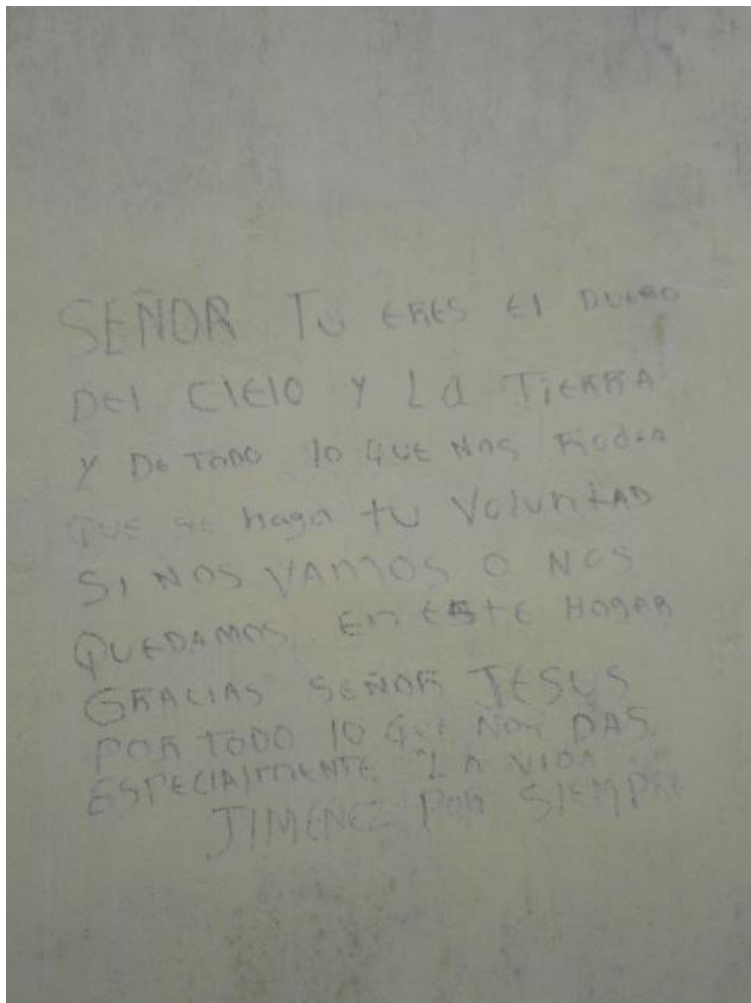 SEÑOR TU ERES El DUEÑO
DEl CIElO Y La TiERRA
Y DE TODO lo QUE NOS RODEA
QUE SE haga tU VolunTAD
SI NOS VAMOS O NOS
QUEDAMOS EN ESTE HOGAR
GRACIAS SEÑOR JESUS
POR TODO lO QUE NOS DAS
ESPECIAlMENTE LA VIDA
JIMENEZ POR SIEMPRE